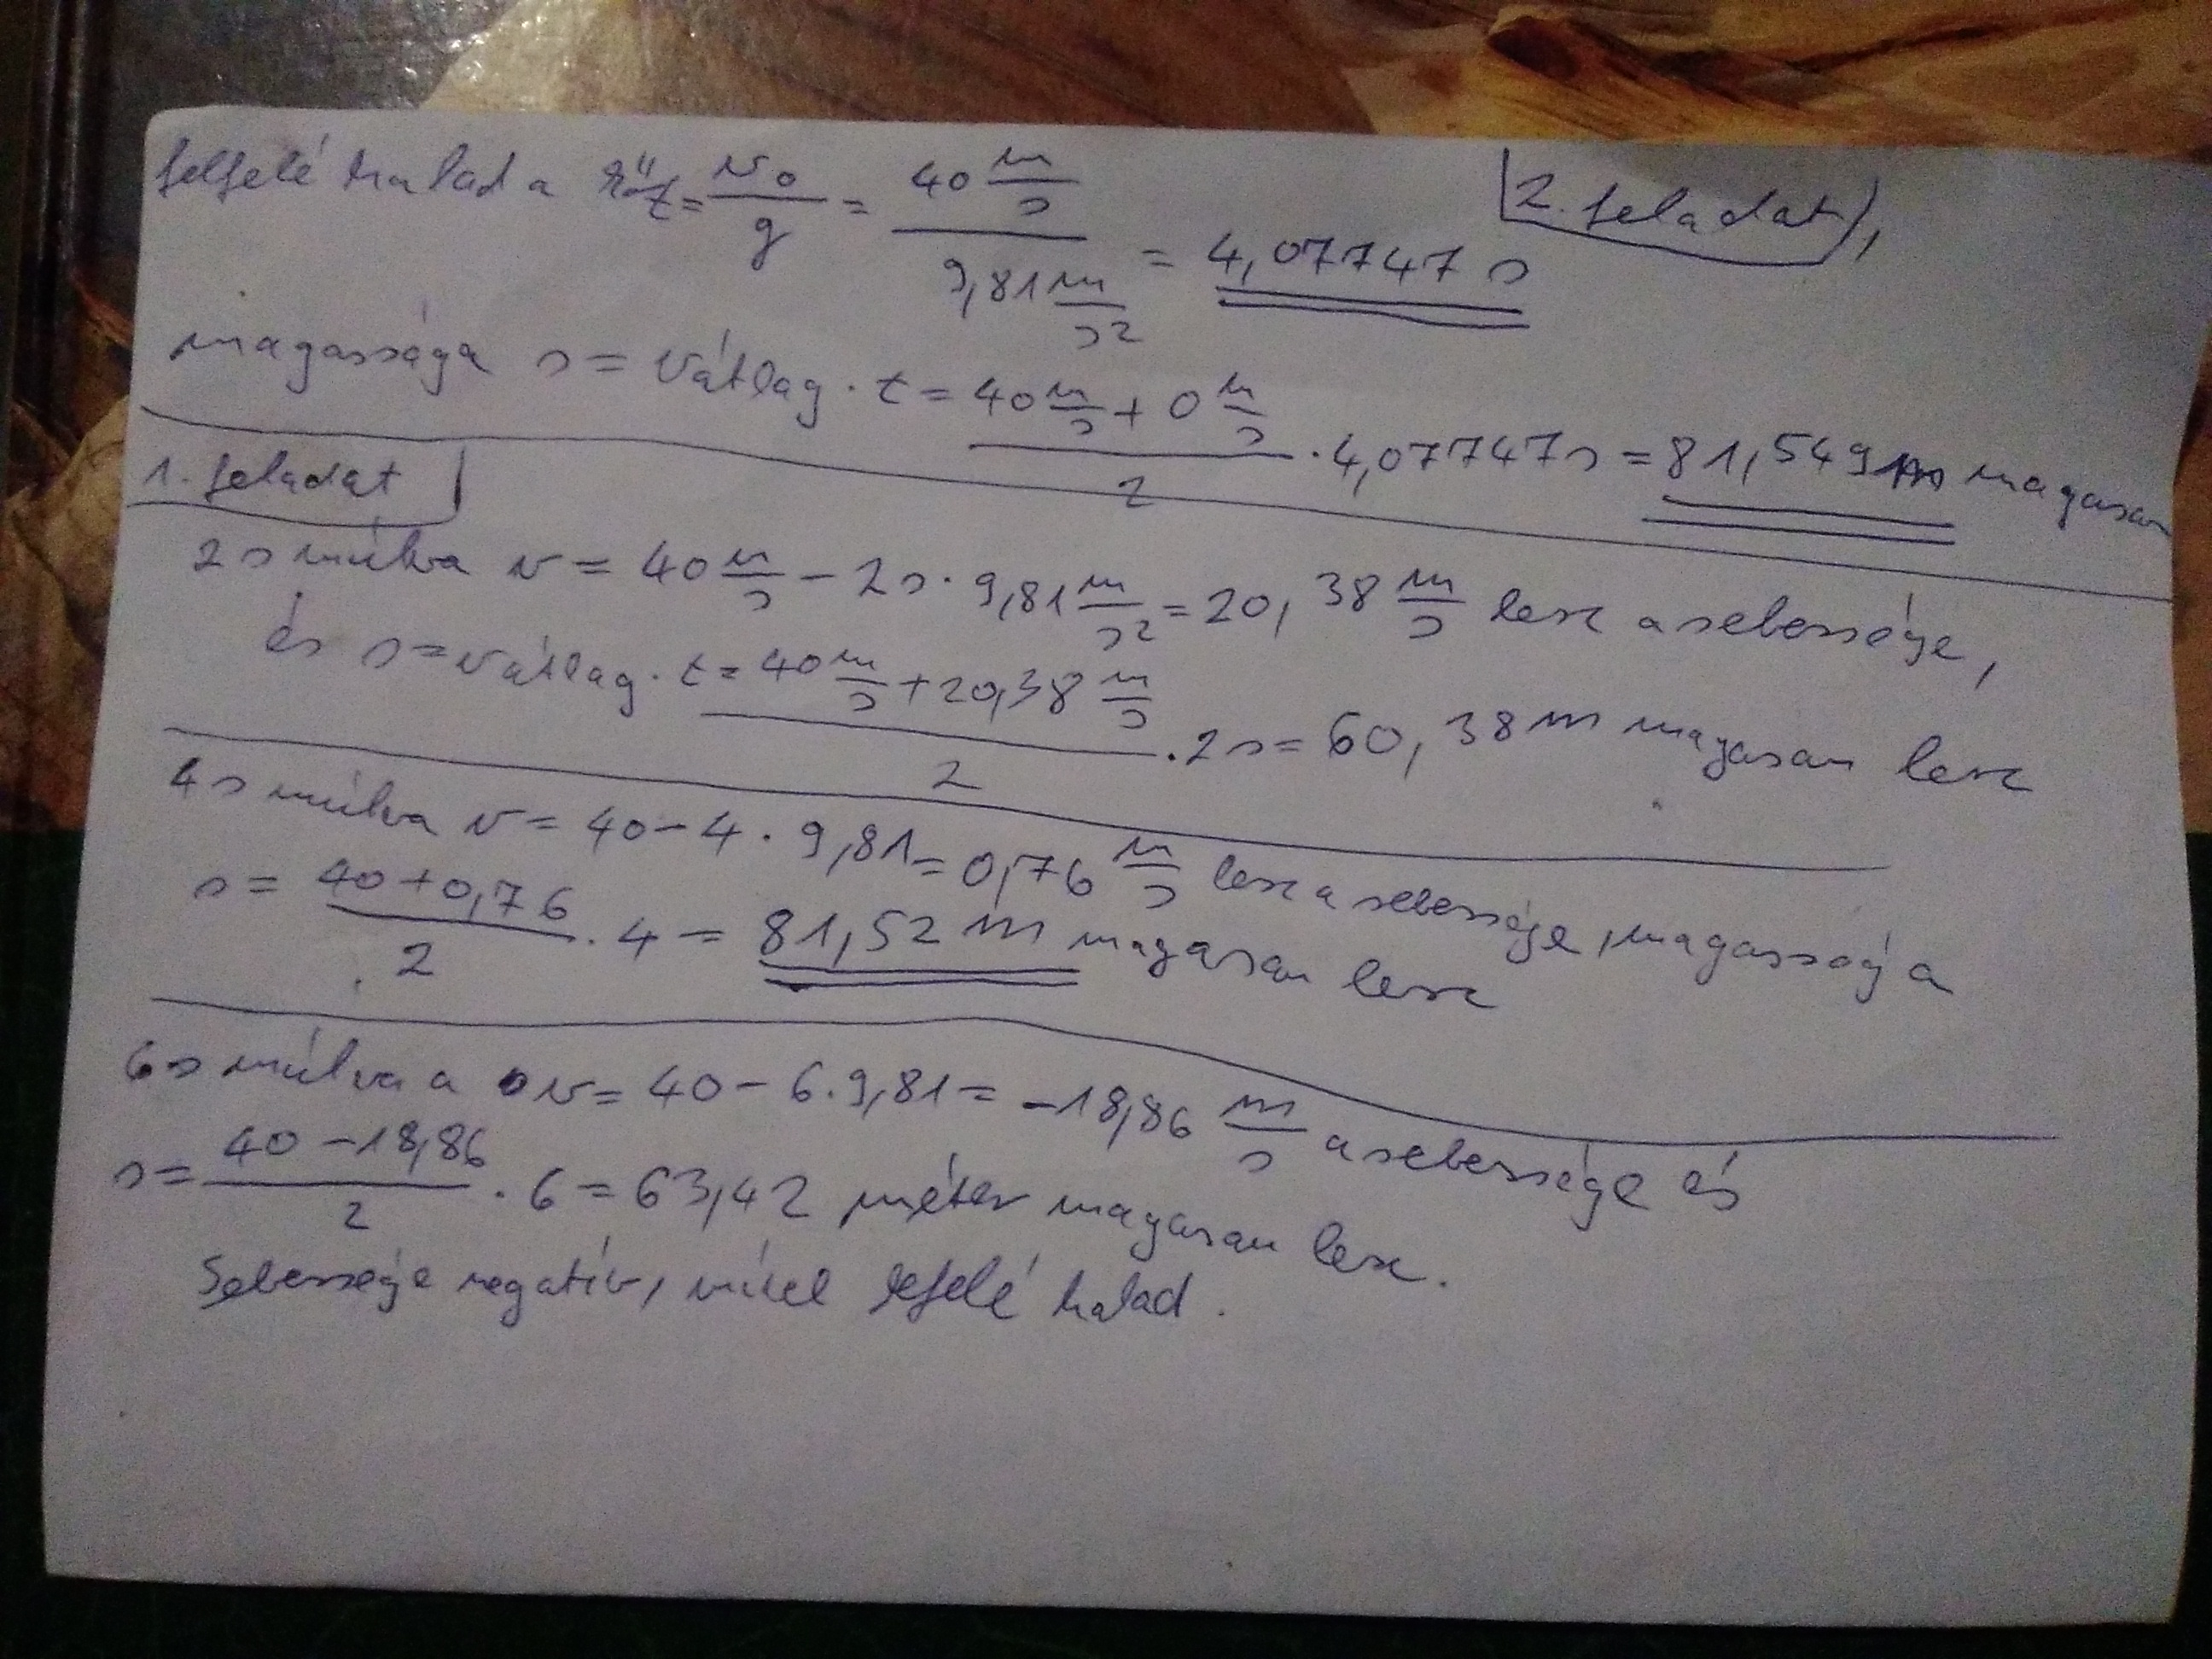 felfelé halad a kő t = v₀/g = 40 m/s / 9,81 m/s² = 4,07747 s
2. feladat),
magassága s = vátlag · t = (40 m/s + 0 m/s)/2 · 4,07747 s = 81,549 m magasan
1. feladat
2 s múlva v = 40 m/s - 2s · 9,81 m/s² = 20,38 m/s lesz a sebessége,
és s = vátlag · t = (40 m/s + 20,38 m/s)/2 · 2 s = 60,38 m magasan lesz
4 s múlva v = 40 - 4 · 9,81 = 0,76 m/s lesz a sebessége, magasság a
s = (40 + 0,76)/2 · 4 = 81,52 m magasan lesz
6 s múlva a v = 40 - 6 · 9,81 = -18,86 m/s a sebessége és
s = (40 - 18,86)/2 · 6 = 63,42 méter magasan lesz.
Sebessége negatív, mivel lefelé halad.